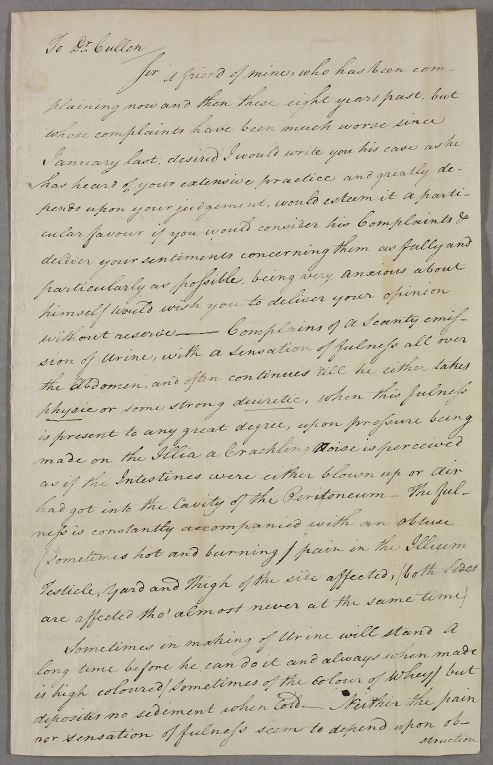 To Dr. Cullen
Sir A friend of mine who has been com-
plaining now and then these eight years past, but
whose complaints have been much worse since
January last, desired I would write you his case as he
has heard of your extensive practice and greatly de-
pends upon your judgement, would esteem it a parti-
cular favour if you would consider his Complaints &
deliver your sentiments concerning them as fully and
particularly as possible, being very anxious about
himself would wish you to deliver your opinion
without reserve — Complains of a Scanty emis-
sion of Urine, with a sensation of fulness all over
the Abdomen, and often continues till he either takes
physic or some strong diuretic, when this fulness
is present to any great degree, upon pressure being
made on the Illia a Crackling Noise is perceived
as if the Intestines were either blown up or air
had got into the Cavity of the Peritoneum — The ful-
ness is constantly accompanied with an obtuse
(Sometimes hot and burning) pain in the Illium
Testicle, Yard and Thigh of the side affected, (both Sides
are affected tho' almost never at the same time)
Sometimes in making of Urine will stand a
long time before he can do it and always when made
is high coloured (Sometimes of the Colour of Whey) but
deposites no sediment when Cold — Neither the pain
nor sensation of fulness seem to depend upon ob-
struction